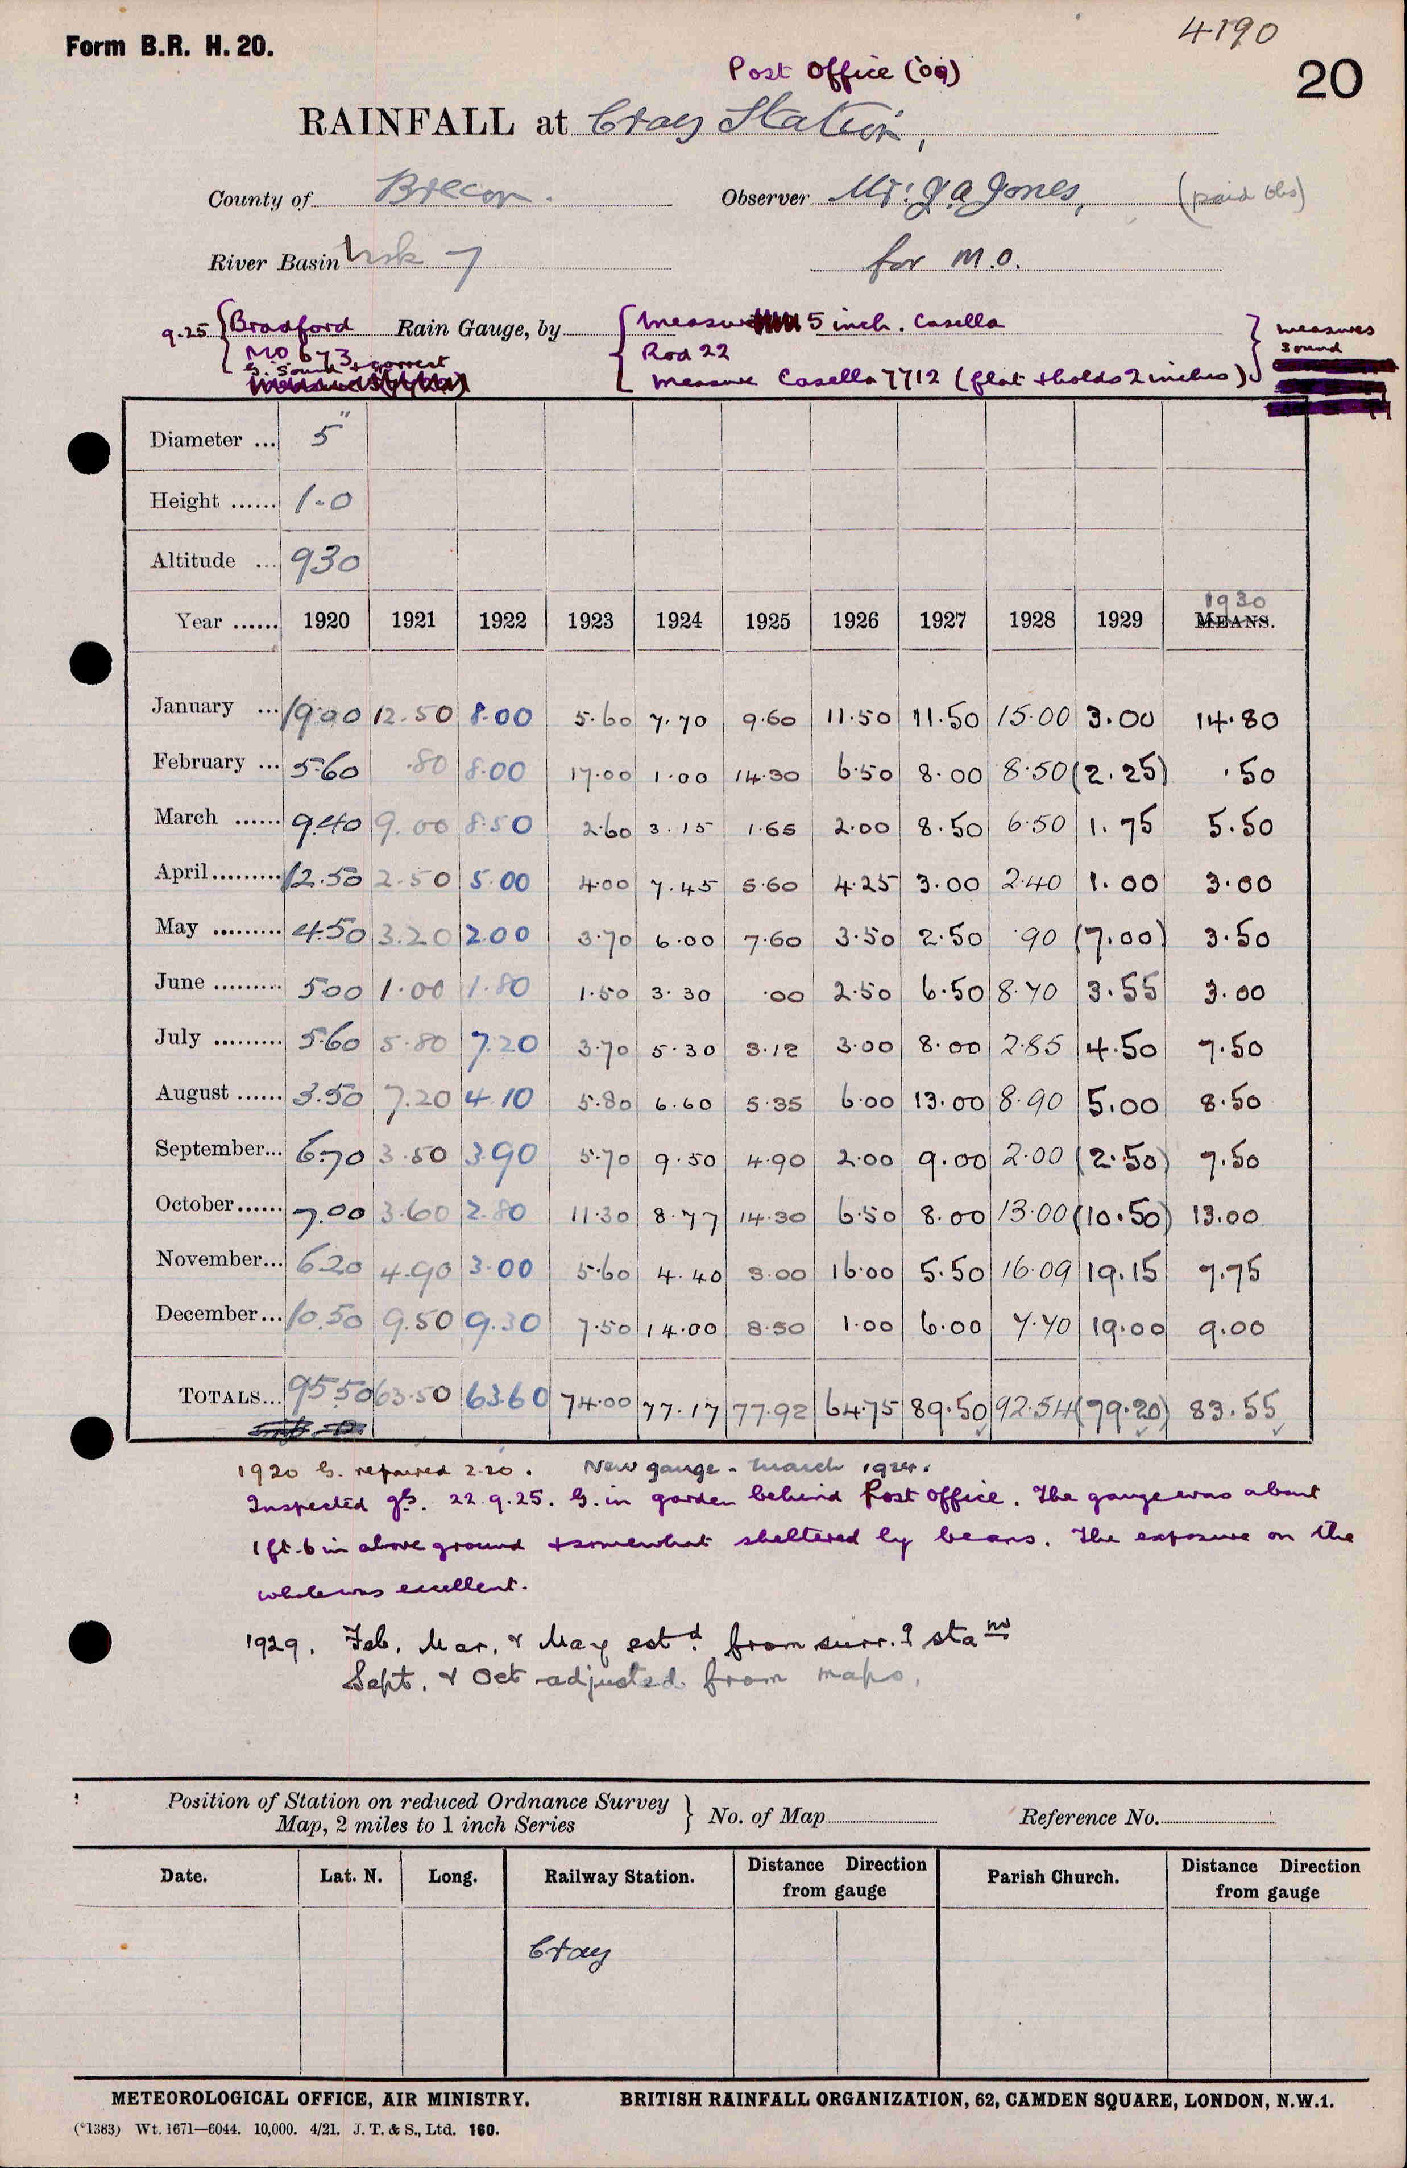 4190
Form B.R. H. 20.
Post Office ('09)
20
RAINFALL at Cray Station,
County of Brecon. Observer Mr. J A Jones, (paid obs)
River Basin Usk 7 for M.O.
9.25 {Bradford Rain Gauge, by {Measure 5 inch. Casella } measures
MO 673 Rod 22 sound
G. Sound & correct Measure Casella 7712 (flat & holds 2 inches)
Diameter ... 5"
Height ...... 1-0
Altitude ... 930
1930
Year ...... 1920 1921 1922 1923 1924 1925 1926 1927 1928 1929 MEANS.
January ... 19.00 12.50 8.00 5.60 7.70 9.60 11.50 11.50 15.00 3.00 14.80
February ... 5.60 .80 8.00 17.00 1.00 14.30 6.50 8.00 8.50 (2.25) .50
March ...... 9.40 9.00 8.50 2.60 3.15 1.65 2.00 8.50 6.50 1.75 5.50
April......... 12.50 2.50 5.00 4.00 7.45 5.60 4.25 3.00 2.40 1.00 3.00
May ......... 4.50 3.20 2.00 3.70 6.00 7.60 3.50 2.50 .90 (7.00) 3.50
June ......... 5.00 1.00 1.80 1.50 3.30 .00 2.50 6.50 8.70 3.55 3.00
July ......... 5.60 5.80 7.20 3.70 5.30 3.12 3.00 8.00 2.85 4.50 7.50
August ...... 3.50 7.20 4.10 5.80 6.60 5.35 6.00 13.00 8.90 5.00 8.50
September... 6.70 3.50 3.90 5.70 9.50 4.90 2.00 9.00 2.00 (2.50) 7.50
October...... 7.00 3.60 2.80 11.30 8.77 14.30 6.50 8.00 13.00 (10.50) 13.00
November... 6.20 4.90 3.00 5.60 4.40 3.00 16.00 5.50 16.09 19.15 7.75
December... 10.50 9.50 9.30 7.50 14.00 8.50 1.00 6.00 7.70 19.00 9.00
TOTALS... 95.50 63.50 63.60 74.00 77.17 77.92 64.75 89.50 92.54 (79.20) 83.55
1920 G. repaired 2.20. New gauge - March 1924.
Inspected gB. 22.9.25. G. in garden behind Post Office. The gauge was about
1 ft. 6 in above ground & somewhat sheltered by beans. The exposure on the
whole was excellent.
1929. Feb, Mar, & May estd. from surr. g stans
Sept. & Oct adjusted from maps.
Position of Station on reduced Ordnance Survey Map, 2 miles to 1 inch Series } No. of Map Reference No.
Date. Lat. N. Long. Railway Station. Distance Direction from gauge Parish Church. Distance Direction from gauge
Cray
METEOROLOGICAL OFFICE, AIR MINISTRY. BRITISH RAINFALL ORGANIZATION, 62, CAMDEN SQUARE, LONDON, N.W.1.
(*1383) Wt. 1671—6044. 10,000. 4/21. J. T. & S., Ltd. 160.